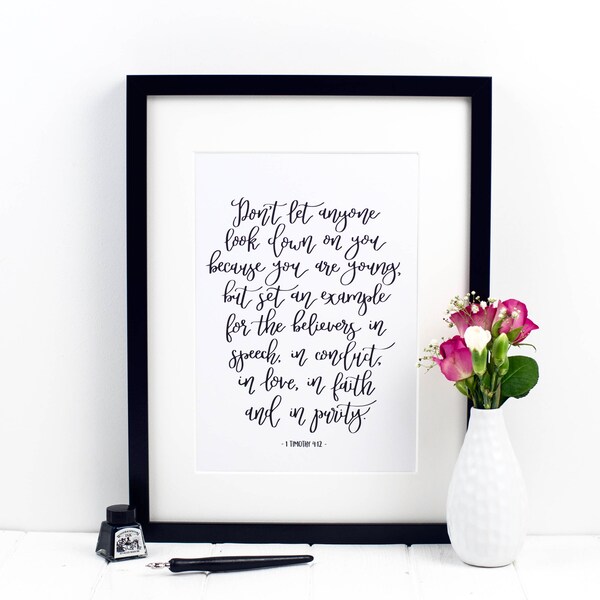 Don't let anyone
look down on you
because you are young,
but set an example
for the believers in
speech, in conduct,
in love, in faith
and in purity.
- 1 TIMOTHY 4:12 -